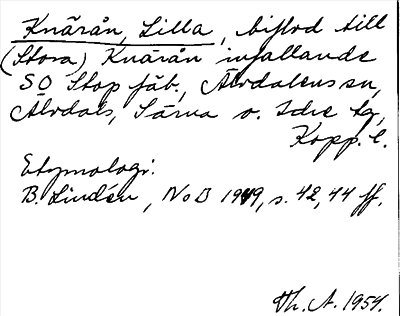 Knärån, Lilla, biflod till
(Stora) Knärån infallande
SO Stop fäb., Älvdalens sn,
Älvdals, Särna o. Idre tg,
Kopp. l.
Etymologi:
B. Lindén, NoB 1949, s. 42, 44 ff.
Th. A. 1954.